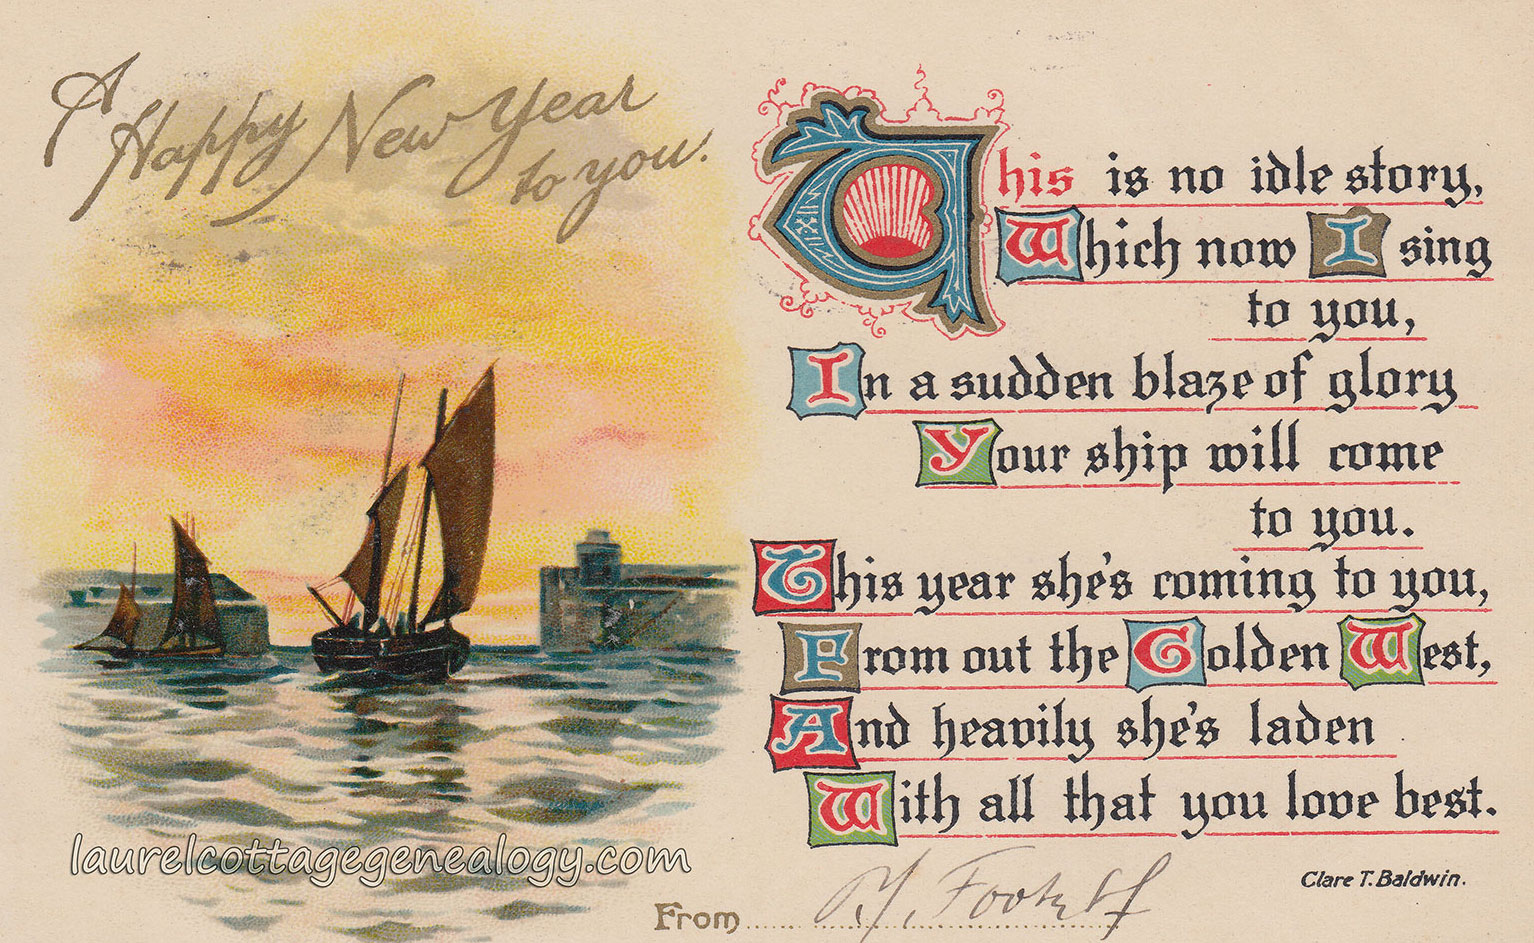 A
Happy New Year
to you.
This is no idle story,
Which now I sing
to you,
In a sudden blaze of glory
Your ship will come
to you.
This year she's coming to you,
From out the Golden West,
And heavily she's laden
With all that you love best.
Clare T. Baldwin.
From
laurelcottagegenealogy.com